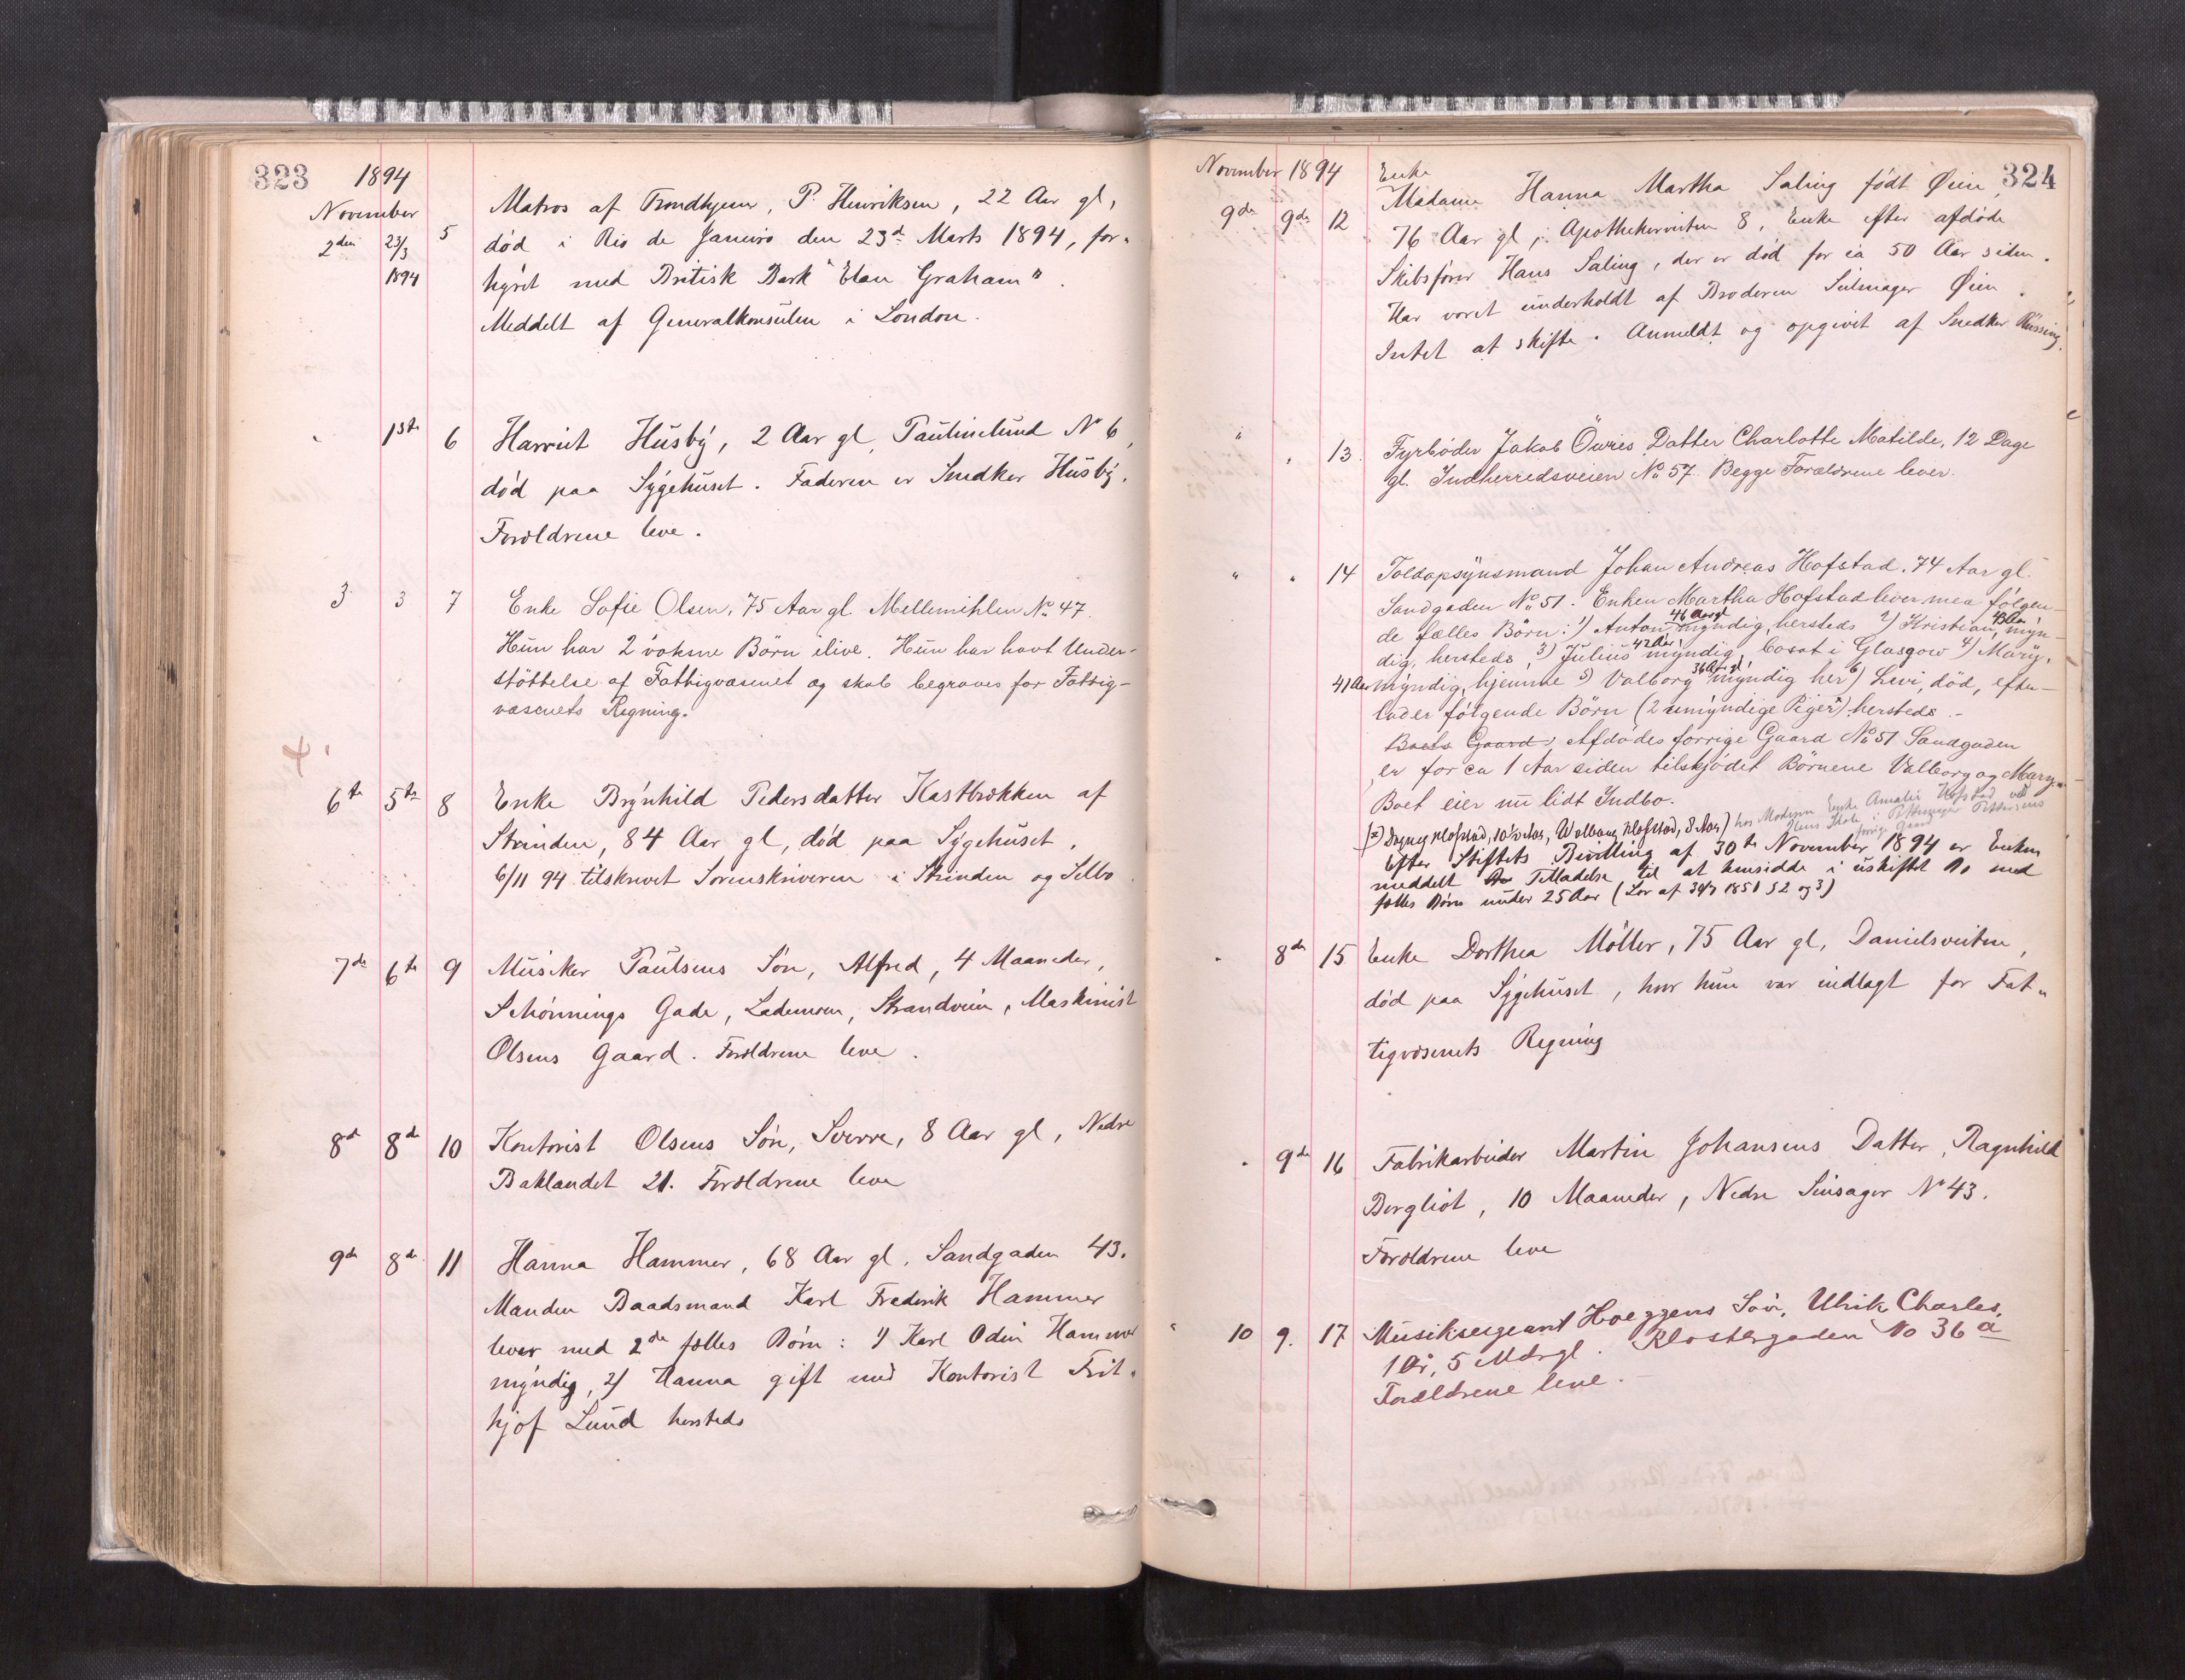 323
1894
November
2den 23/3 1894 5 Matros af Trondhjem, P. Henriksen, 22 Aar gl,
død i Rio de Janeiro den 23d Marts 1894, for-
hyret med Britisk Bark "Elan Graham".
Meddelt af Generalkonsulen i London.
1ste 6 Harriet Husby, 2 Aar gl, Paulinelund No 6,
død paa Sygehuset. Faderen er Snedker Husby.
Forældrene leve.
3 3 7 Enke Sofie Olsen, 75 Aar gl. Mellemihlen No. 47.
Hun har 2 voksne Börn ilive. Hun har havt Under-
stöttelse af Fattigvæsenet og skal begraves for Fattig-
væsenets Regning.
6te 5te 8 Enke Brynhild Pedersdatter Kastbrekken af
Strinden, 84 Aar gl, død paa Sygehuset.
6/11 94 tilskrevet Sorenskriveren i Strinden og Selbo.
7de 6te 9 Musiker Paulsens Søn, Alfred, 4 Maaneder,
Schönnings Gade, Lademoen, Strandveien, Maskinist
Olsens Gaard. Forældrene leve.
8d 8de 10 Kontorist Olsens Søn, Sverre, 8 Aar gl, Nedre
Baklandet 21. Forældrene leve
9de 8de 11 Hanna Hammer, 68 Aar gl, Sandgaden 43.
Manden Baadsmand Karl Fredrik Hammer
lever med 2de fælles Børn: 1/ Karl Odin Hammer
myndig, 2/ Hanna gift med Kontorist Frit-
hjof Lund hersteds
324
November 1894
Enke
9de 9de 12 Madame Hanna Martha Saling født Øien,
76 Aar gl, Apothekerveiten 8, Enke efter afdøde
Skibsfører Hans Saling, der er død for ca 50 Aar siden.
Har været underholdt af Broderen Seilmager Øien.
Intet at skifte. Anmeldt og opgivet af Snedker Russing.
" " 13. Fyrbøder Jakob Öwres Datter Charlotte Matilde, 12 Dage
gl. Indherredsveien No. 57. Begge Forældrene lever.
" " 14 Toldopsynsmand Johan Andreas Hofstad. 74 Aar gl.
Sandgaden No. 51. Enken Martha Hofstad lever med følgen-
de fælles Børn: 1) Anton 46 Aar gl myndig, hersteds 2) Kristian, 43 Aar myn-
dig, hersteds, 3) Julius 42 Aar myndig, bosat i Glasgow 4) Mary,
41 Aar myndig, hjemme 5) Valborg 36 Aar gl myndig her 6) Levi, død, efter-
lader følgende Börn (2 umyndige Piger x) hersteds.-
Boets Gaard, Afdødes forrige Gaard No. 51 Sandgaden
er for ca 1 Aar siden tilskjødet Börnene Valborg og Mary.-
Boet eier nu lidt Indbo.
(x) Dagny Hofstad, 10½ Aar, Valborg Hofstad, 8 Aar) hos Moderen Enke Amalie Hofstad ved
Ilens Skole i Pettersens
forrige Gaard
Efter Stiftets Bevilling af 30te November 1894 er Enken
meddelt Tilladelse til at hensidde i uskiftet Bo med
fælles Børn under 25 Aar (Lov af 30/7 1851 § 2 og 3)
" 8de 15 Enke Dorthea Möller, 75 Aar gl, Danielsveiten,
død paa Sygehuset, hvor hun var indlagt for Fat-
tigvæsenets Regning
" 9de 16 Fabrikarbeider Martin Johansens Datter, Ragnhild
Bergliot, 10 Maaneder, Nedre Singsager No 43.
Forældrene leve
" 10 9. 17 Musiksergeant Hoeggens Søn, Ulrik Charles,
1 Aar, 5 Mdr gl. Klostergaden No 36 a
Forældrene leve.-